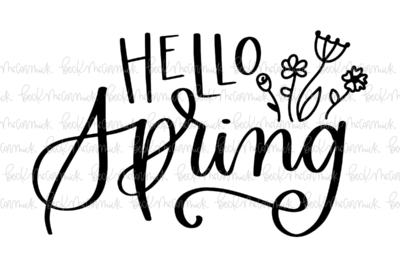 HELLO
Spring